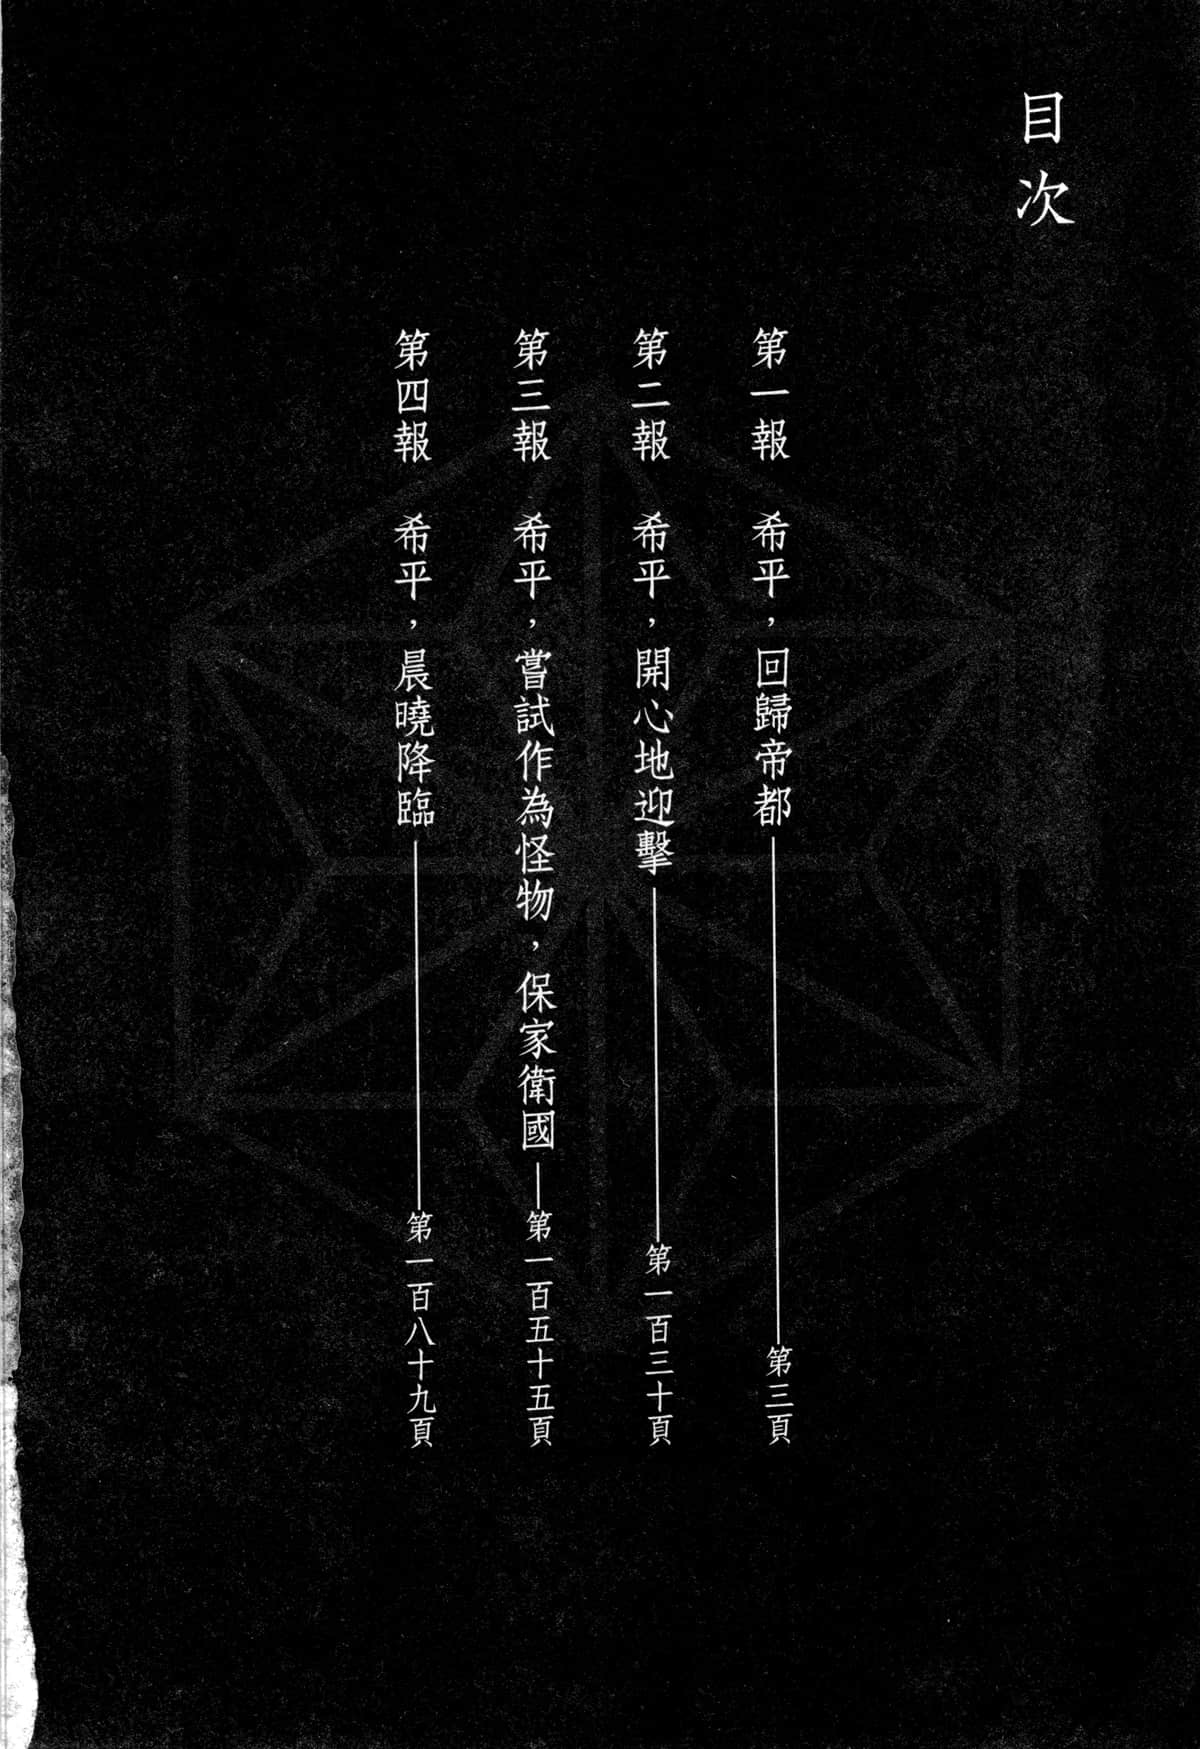 目次
第一報　希平，回歸帝都——第三頁
第二報　希平，開心地迎擊——第一百三十頁
第三報　希平，嘗試作為怪物，保家衛國——第一百五十五頁
第四報　希平，晨曉降臨——第一百八十九頁